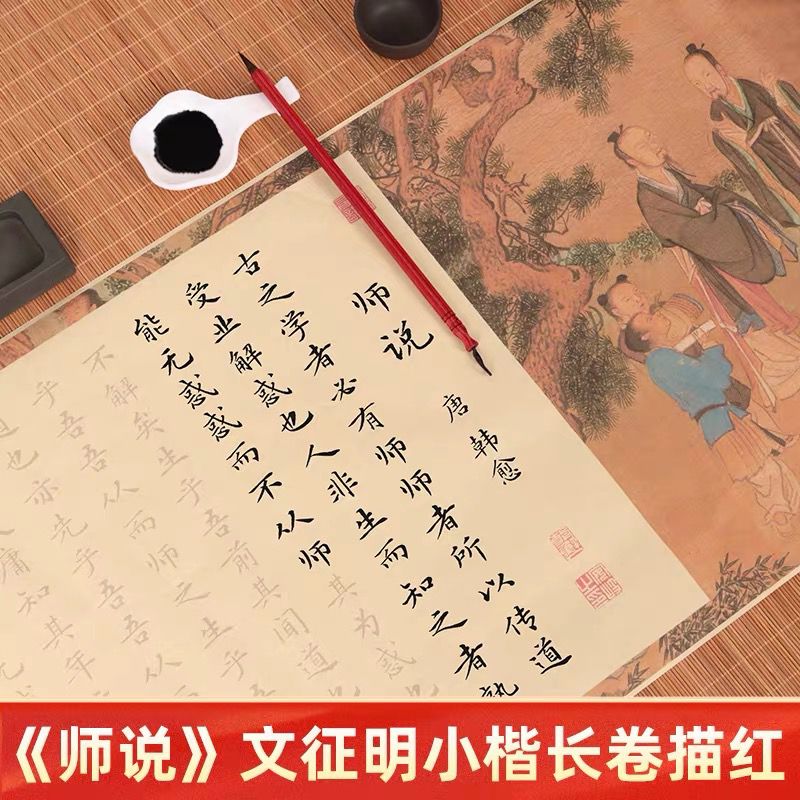 师说
唐 韩愈
古之学者必有师师者所以传道
受业解惑也人非生而知之者孰
能无惑惑而不从师其为惑也
不解矣生乎吾前其闻道
乎吾吾从而师之生乎
也亦先乎吾吾从
庸知其年
无
《师说》文征明小楷长卷描红